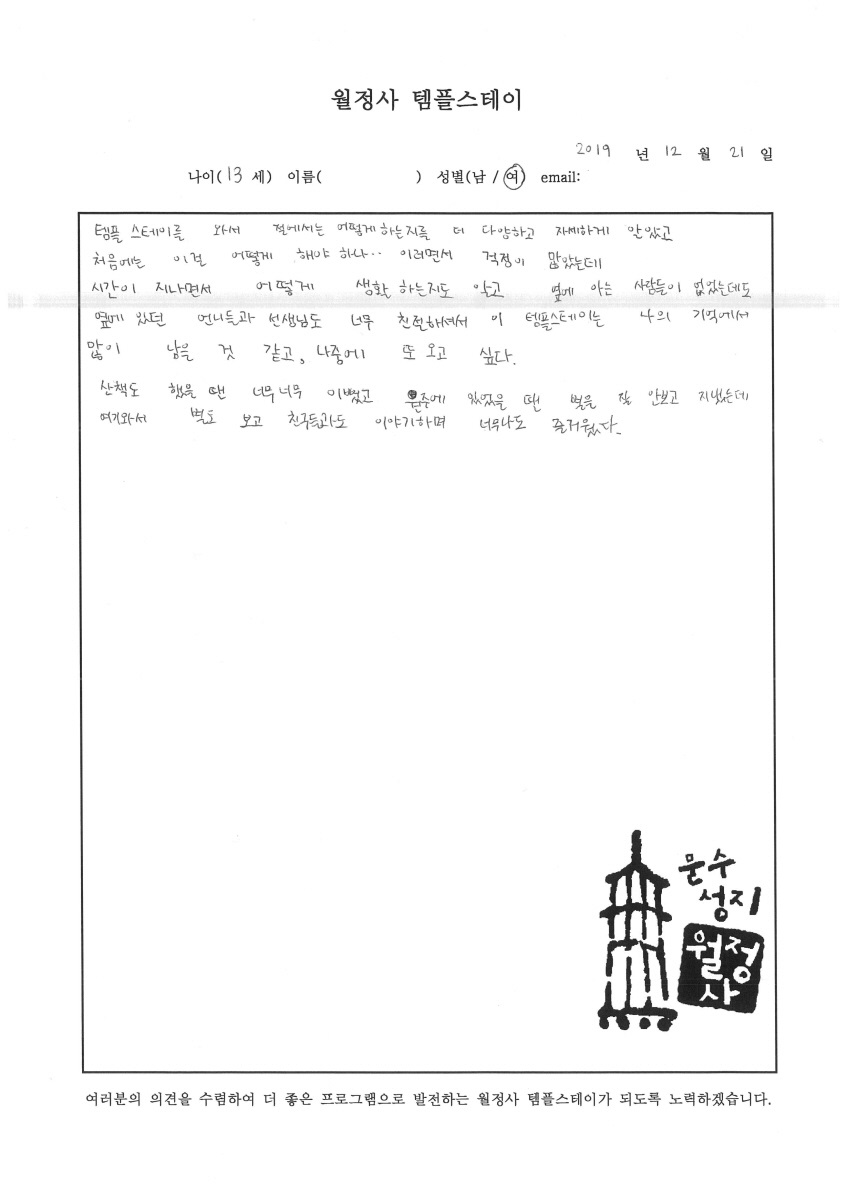 월정사 템플스테이
2019 년 12 월 21 일
나이( 13 세) 이름( ) 성별(남 / 여) email:
템플 스테이를 와서 절에서는 어떻게 하는지를 더 다양하고 자세하게 알았고
처음에는 이걸 어떻게 해야 하나.. 이러면서 걱정이 많았는데
시간이 지나면서 어떻게 생활 하는지도 알고 옆에 아는 사람들이 없었는데도
옆에 있던 언니들과 선생님도 너무 친절하셔서 이 템플스테이는 나의 기억에서
많이 남을 것 같고, 나중에 또 오고 싶다.
산책도 했을 땐 너무너무 이뻤고 원주에 있었을 땐 별을 잘 안보고 지냈는데
여기와서 별도 보고 친구들과도 이야기하며 너무나도 즐거웠다.
문수
성지
월정
사
여러분의 의견을 수렴하여 더 좋은 프로그램으로 발전하는 월정사 템플스테이가 되도록 노력하겠습니다.